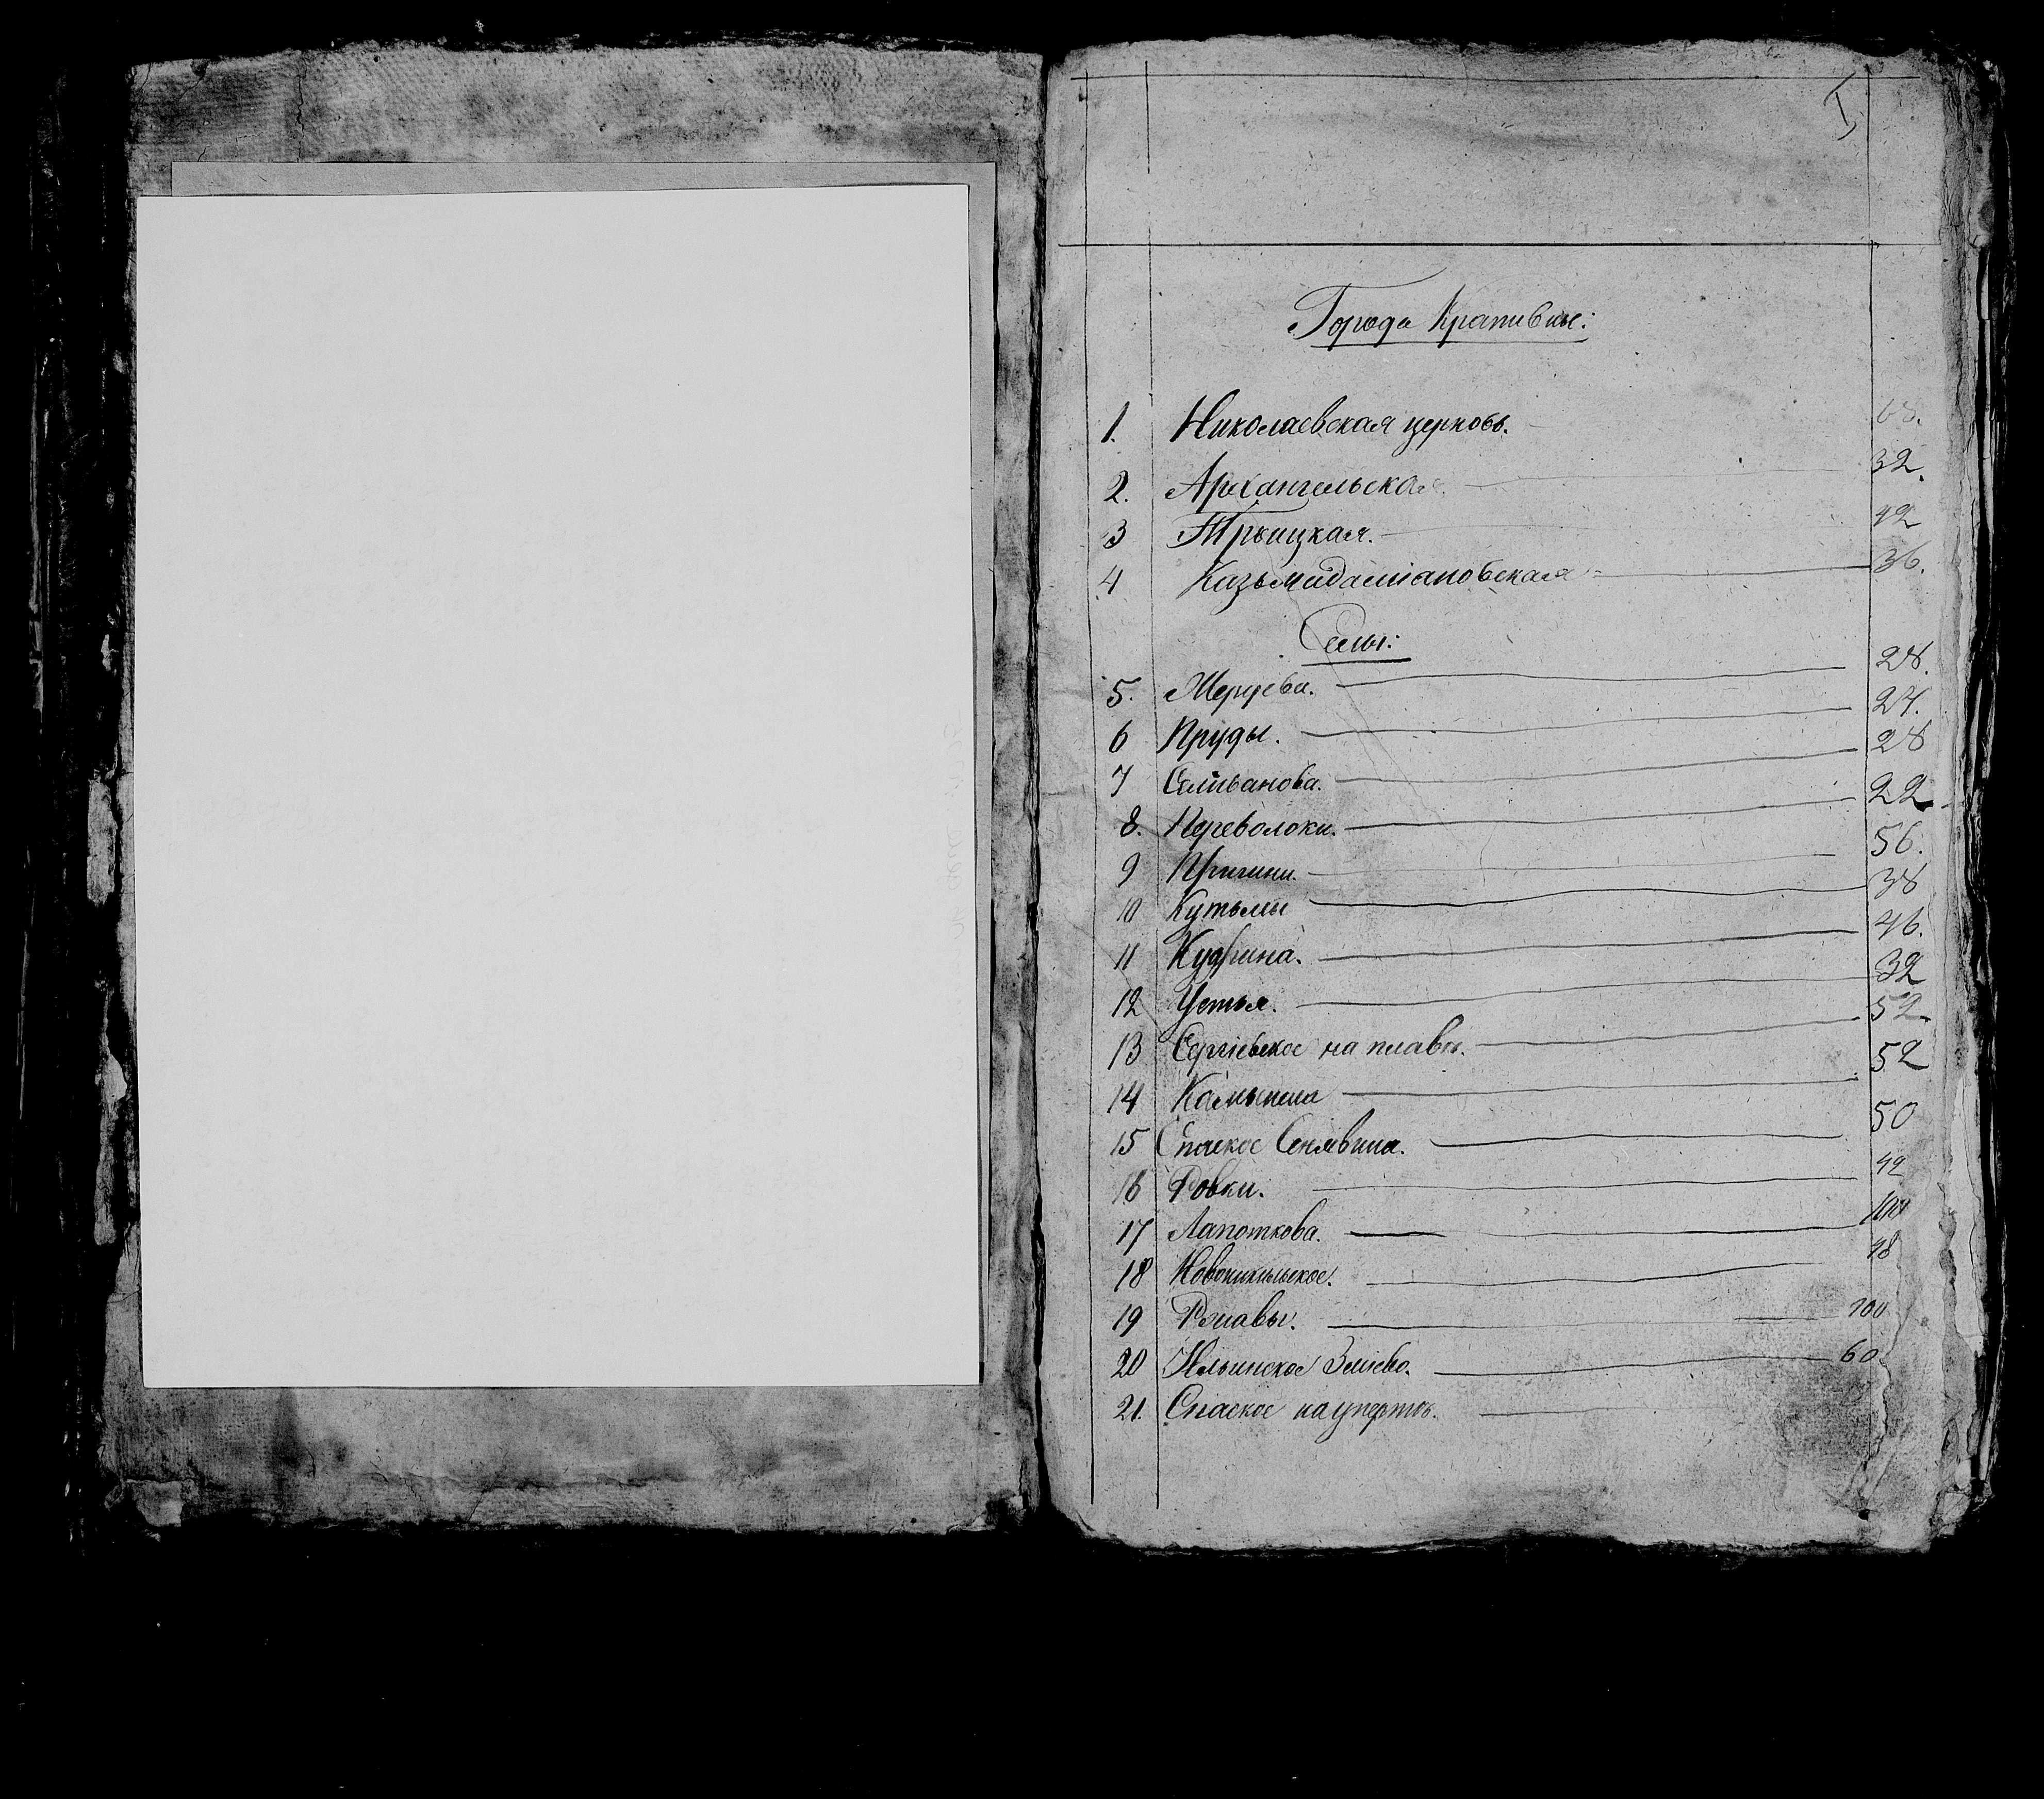 I
Города Крапивны:
1. Николаевская церковь. 68.
2. Архангельская. 32.
3 Троицкая. 42
4 Казьмидаміановская 36.
Селы:
5. Мерцева. 28.
6 Пруды. 24.
7 Селиванова. 28
8. Переволоки. 22
9 Пришни. 56.
10 Кутьмы 38
11 Кудрина. 46.
12 Устья. 32
13 Сергіевское на плавѣ. 52
14 Камынина 52
15 Спаское Сенявина. 50
16 Ровки. 42
17 Лапоткова.
18 Новоникольское. 48
19 Ржавы. 100
20 Ильинское Зміево. 60
21. Спаское на упертѣ.